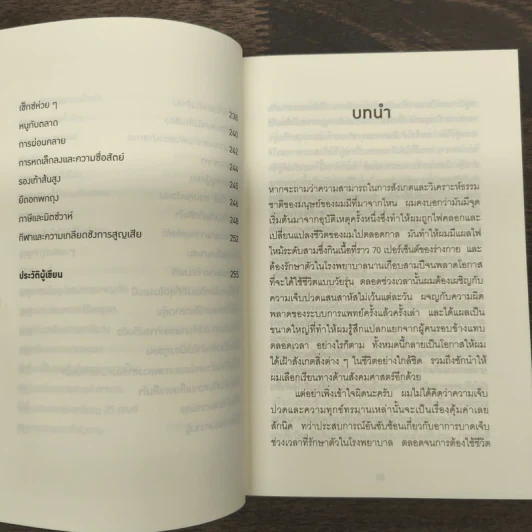 เซ็กซ์ห่วย ๆ 238
หนูกับตลาด 240
การผ่อนคลาย 242
การหดเล็กลงและความซื่อสัตย์ 244
รองเท้าส้นสูง 245
ยืดอกพกถุง 246
ภาษีและมิตซ์วาห์ 248
กีฬาและความเกลียดชังการสูญเสีย 252
ประวัติผู้เขียน 255
บทนำ
หากจะถามว่าความสามารถในการสังเกตและวิเคราะห์ธรรม
ชาติของมนุษย์ของผมมีที่มาจากไหน ผมคงบอกว่ามันมีจุด
เริ่มต้นมาจากอุบัติเหตุครั้งหนึ่งซึ่งทำให้ผมถูกไฟคลอกและ
เปลี่ยนแปลงชีวิตของผมไปตลอดกาล มันทำให้ผมมีแผลไฟ
ไหม้ระดับสามซึ่งกินเนื้อที่ราว 70 เปอร์เซ็นต์ของร่างกาย และ
ต้องรักษาตัวในโรงพยาบาลนานเกือบสามปีจนพลาดโอกาส
ที่จะได้ใช้ชีวิตแบบวัยรุ่น ตลอดช่วงเวลานั้นผมต้องเผชิญกับ
ความเจ็บปวดแสนสาหัสไม่เว้นแต่ละวัน ผจญกับความผิด
พลาดของระบบการแพทย์ครั้งแล้วครั้งเล่า และได้แผลเป็น
ขนาดใหญ่ที่ทำให้ผมรู้สึกแปลกแยกจากผู้คนรอบข้างแทบ
ตลอดเวลา อย่างไรก็ตาม ทั้งหมดนี้กลายเป็นโอกาสให้ผม
ได้เฝ้าสังเกตสิ่งต่าง ๆ ในชีวิตอย่างใกล้ชิด รวมถึงชักนำให้
ผมเลือกเรียนทางด้านสังคมศาสตร์อีกด้วย
แต่อย่าเพิ่งเข้าใจผิดนะครับ ผมไม่ได้คิดว่าความเจ็บ
ปวดและความทุกข์ทรมานเหล่านั้นจะเป็นเรื่องคุ้มค่าเลย
สักนิด ทว่าประสบการณ์อันซับซ้อนเกี่ยวกับอาการบาดเจ็บ
ช่วงเวลาที่รักษาตัวในโรงพยาบาล ตลอดจนการต้องใช้ชีวิต